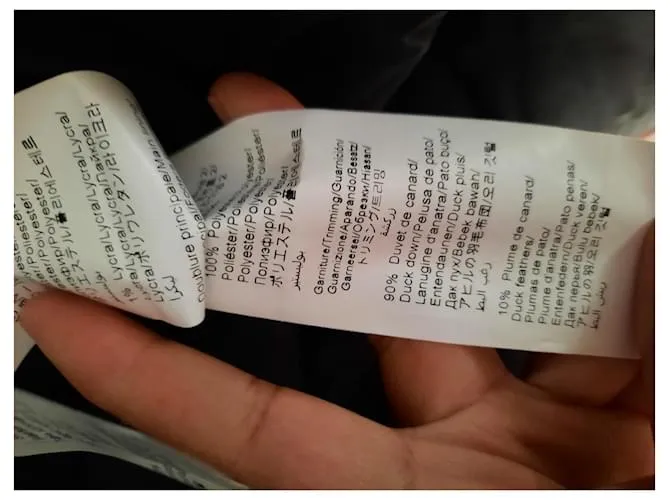 Polyester/
Polyester/
ポリエステル/폴리에스테르
Lycra/
Lycra/Lycra/Lycra/
Lycra/Lycra/лайкра/
Lycra/ポリウレタン/라이크라
ليكرا
Doublure principale/Main
100%
Poliéster/
Polyester/
Полиэфир/Polyester/
ポリエステル/폴리에스테르
بوليستير
Garniture/Trimming/Guarnición/
Guarnizione/Aparando/Besatz/
Garneersel/Обрезки/Hiasan/
トリミング/트리밍
زركشة
90% Duvet de canard/
Duck down/Pelusa de pato/
Lanugine d'anatra/Pato buço/
Entendaunen/Duck pluis/
Дак пух/Bebek bawah/
アヒルの羽毛布団/오리 깃털
زغب البط
10% Plume de canard/
Duck feathers/
Plumas de pato/
Piume d'anatra/Pato penas/
Entenfedern/Duck veren/
Дак перья/Bulu bebek/
アヒルの羽/오리 깃털
ريش البط